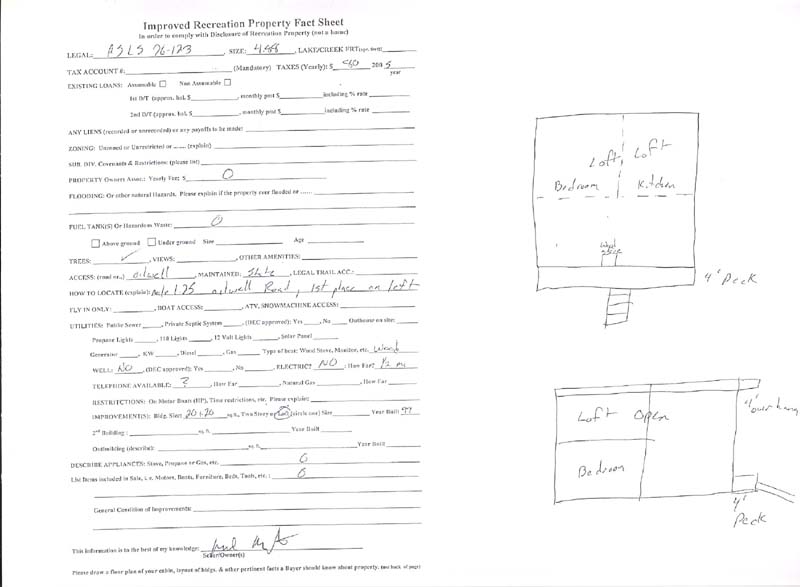 Improved Recreation Property Fact Sheet
In order to comply with Disclosure of Recreation Property (not a home)
LEGAL: ASLS 76-123 SIZE: 4.88, LAKE/CREEK FRT(apx. feet)
TAX ACCOUNT #: (Mandatory) TAXES (Yearly): $ 200 5
year
EXISTING LOANS: Assumable Non Assumable
1st D/T (approx. bal. $ , monthly pmt $ including % rate
2nd D/T (approx. bal. $ , monthly pmt $ including % rate
ANY LIENS (recorded or unrecorded) or any payoffs to be made:
ZONING: Unzoned or Unrestricted or ...... (explain)
SUB. DIV. Covenants & Restrictions: (please list)
PROPERTY Owners Assoc.: Yearly Fee: $ 0
FLOODING: Or other natural Hazards. Please explain if the property ever flooded or ......
FUEL TANK(S) Or Hazardous Waste: 0
Above ground Under ground Size Age
TREES: ✓ , VIEWS: , OTHER AMENITIES:
ACCESS: (road or..) oilwell , MAINTAINED: State , LEGAL TRAIL ACC.:
HOW TO LOCATE (explain): Mile 1.25 oilwell Road, 1st place on left
FLY IN ONLY: , BOAT ACCESS: , ATV, SNOWMACHINE ACCESS:
UTILITIES: Public Sewer , Private Septic System , (DEC approved): Yes , No Outhouse on site:
Propane Lights , 110 Lights , 12 Volt Lights , Solar Panel
Generator , KW , Diesel , Gas Type of heat: Wood Stove, Monitor, etc. Wood
WELL: NO , (DEC approved): Yes , No , ELECTRIC? NO : How Far? 1/2 mi
TELEPHONE AVAILABLE: ? , How Far , Natural Gas , How Far
RESTRICTIONS: On Motor Boats (HP), Time restrictions, etc. Please explain:
IMPROVEMENT(S): Bldg. Size: 20x20 sq.ft., Two Story or Loft (circle one) Size Year Built 99
2nd Building : sq. ft. Year Built
Outbuilding (describe): sq. ft. Year Built
DESCRIBE APPLIANCES: Stove, Propane or Gas, etc. 0
List Items included in Sale, i. e. Motors, Boats, Furniture, Beds, Tools, etc. : 0
General Condition of Improvements:
This information is to the best of my knowledge:
Seller/Owner(s)
Please draw a floor plan of your cabin, layout of bldgs. & other pertinent facts a Buyer should know about property. (use back of page)
Loft Loft
Bedroom Kitchen
Wood
stove
4' Deck
Loft Open
4' overhang
Bedroom
4'
Deck